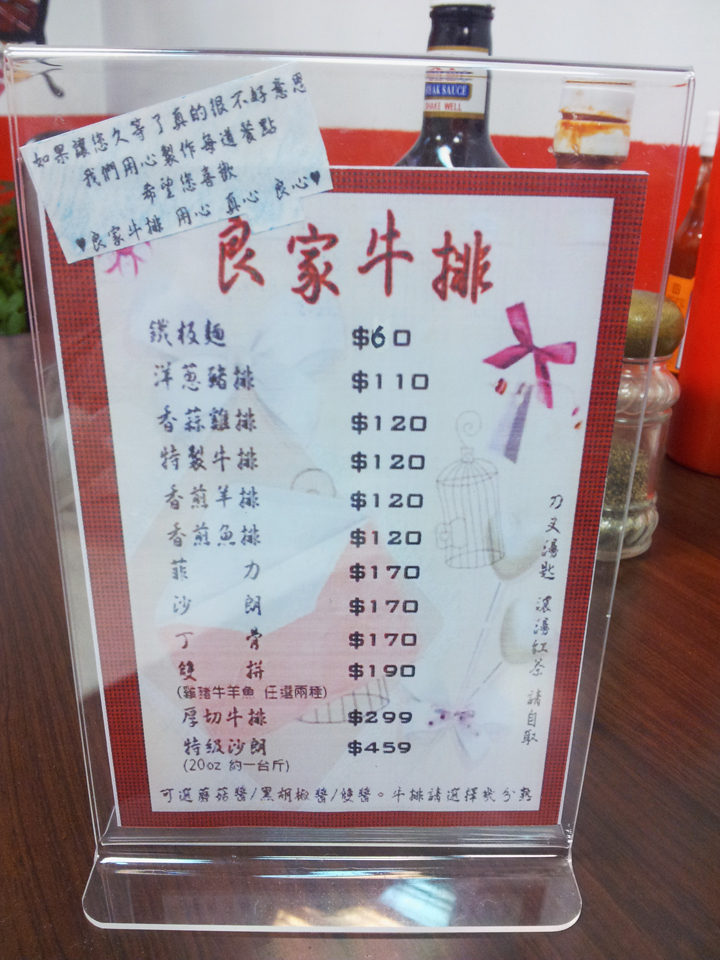 如果讓您久等了真的很不好意思
我們用心製作每道餐點
希望您喜歡
♥良家牛排 用心 真心 良心♥
STEAK SAUCE
SHAKE WELL
良家牛排
鐵板麵 $60
洋蔥豬排 $110
香蒜雞排 $120
特製牛排 $120
香煎羊排 $120
香煎魚排 $120
菲力 $170
沙朗 $170
丁骨 $170
雙拼 $190
(雞豬牛羊魚 任選兩種)
厚切牛排 $299
特級沙朗 $459
(20oz 約一台斤)
可選蘑菇醬/黑胡椒醬/雙醬。牛排請選擇幾分熟
刀叉湯匙 濃湯紅茶 請自取